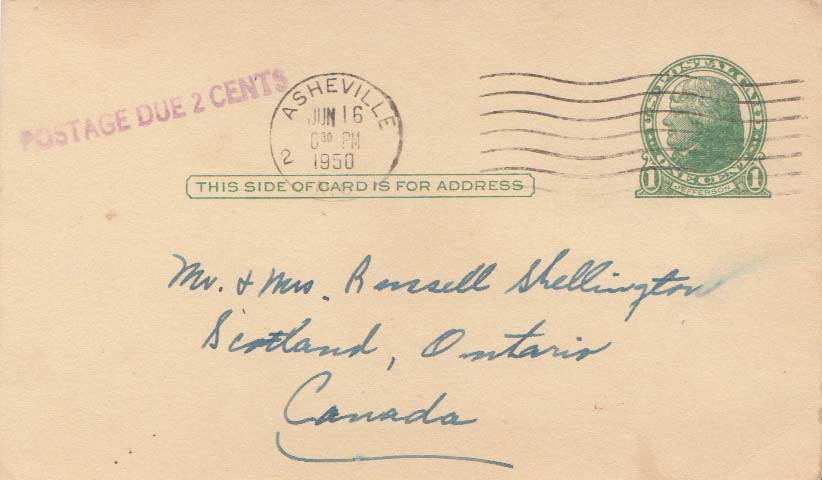 POSTAGE DUE 2 CENTS
ASHEVILLE
JUN 16
6 30 PM
1950
2
U.S. POSTAL CARD
ONE CENT
1 JEFFERSON 1
THIS SIDE OF CARD IS FOR ADDRESS
Mr. & Mrs. Russell Shellington
Scotland, Ontario
Canada